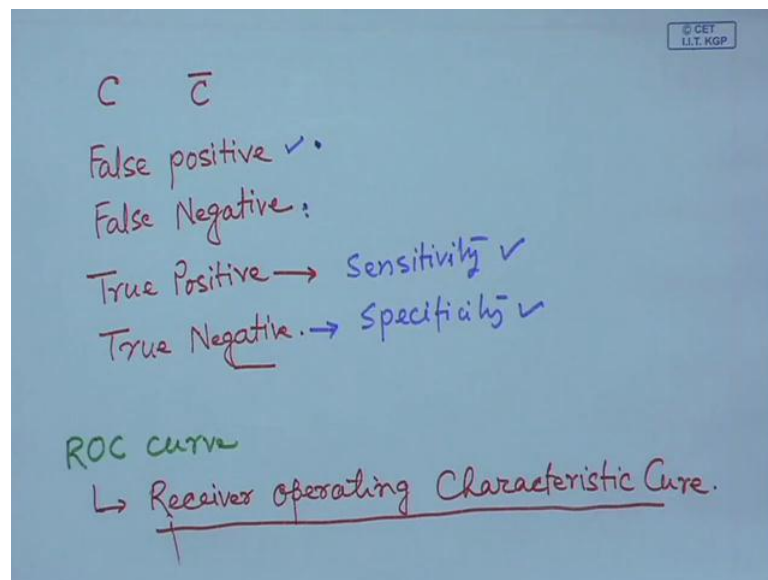 © CET
I.I.T. KGP
C C̅
False positive ✓ .
False Negative :
True Positive → Sensitivity ✓
True Negative. → Specificity ✓
ROC curve
↳ Receiver operating Characteristic Cure.